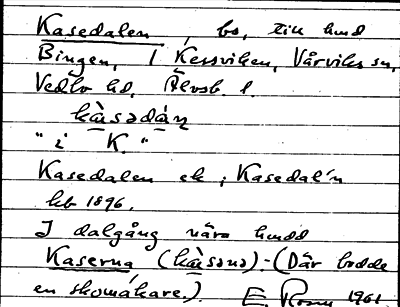 Kasedalen, bo, till hmd
Bingen, i Kesviken, Vårviks sn,
Vedbo hd, Älvsb. l.
kàsədán
"i K."
Kasedalen ek; Kasedal'n
kb 1896.
I dalgång nära hmdd
Kaserna (kàsənə):-(Där bodde
en skomakare.). E. Rosen 1961